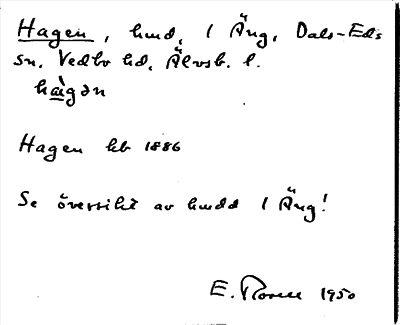 Hagen, hmd, 1 Äng, Dals-Eds
sn. Vedbo hd. Älvsb. l.
hàgən
Hagen kb 1886
Se översikt av hmdd 1 Äng!
E. 1950